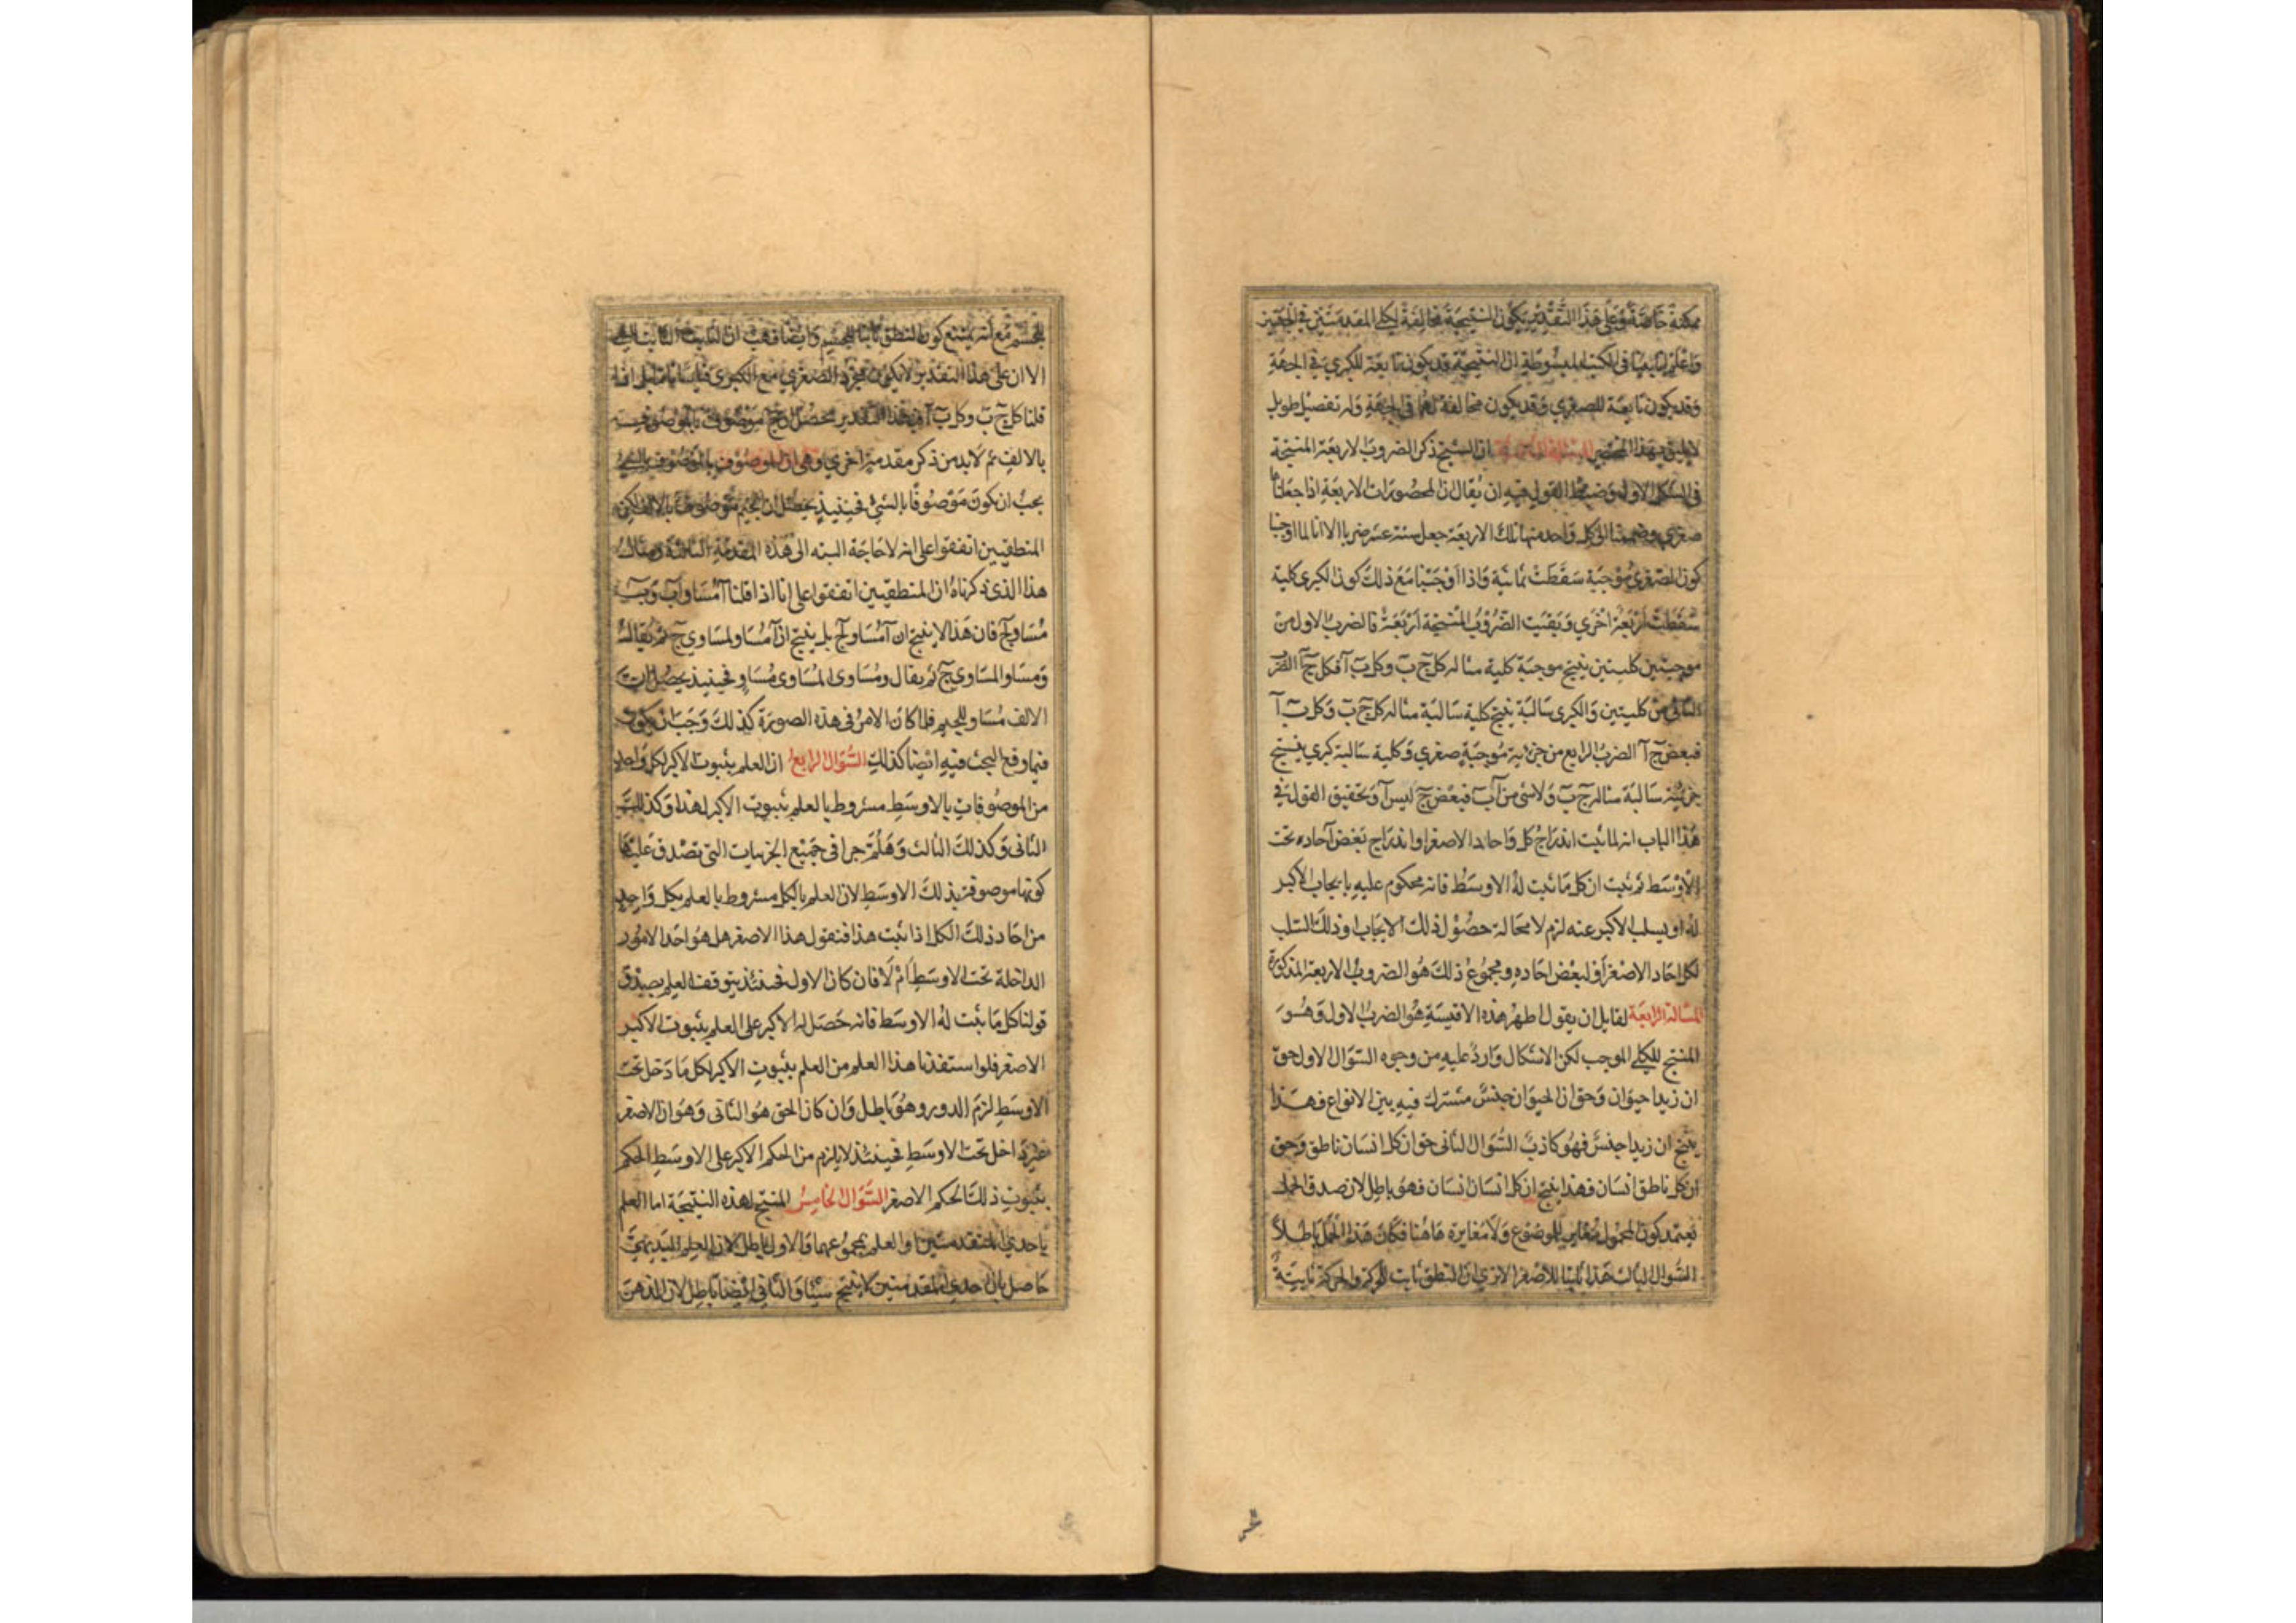 ممكنة خاصة وعلى هذا التقدير يكون النتيجة مخالفة لكلى المقدمتين في الجهتين
واعلم انا بينا في الكتب المبسوطة ان النتيجة قد يكون تابعة للكبرى في الجهة
وقد يكون تابعة للصغرى وقد يكون مخالفة لهما في الجهة وله تفصيل طويل
لا يليق بهذا المختصر المسئلة الثالثة ان الشيخ ذكر الضروب الاربعة المنتجة
في الشكل الاول وضبط القول فيه ان يقال ان المحصورات الاربعة اذا جعلناها
صغرى وضممنا الى كل واحد منها تلك الاربعة جعل ستة عشر ضربا الا انا لما اوجبنا
كون الصغرى موجبة سقطت ثمانية واذا اوجبنا مع ذلك كون الكبرى كلية
سقطت اربعة اخرى وبقيت الضروب المنتجة اربعة فالضرب الاول من
موجبتين كليتين ينتج موجبة كلية مثاله كل ج ب وكل ب آ فكل ج آ الضرب
الثاني من كليتين والكبرى سالبة ينتج كلية سالبة مثاله كل ج ب وكل ب آ
فبعض ج آ الضرب الرابع من جزئية موجبة صغرى وكلية سالبة كبرى ينتج
جزئية سالبة مثاله ج ب ولا شئ من آ ب فبعض ج ليس آ وتحقيق القول في
هذا الباب انه لما ثبت اندراج كل واحاد الاصغر او اندراج بعض آحاده تحت
الاوسط ثم ثبت ان كل ما ثبت له الاوسط فانه محكوم عليه بايجاب الاكبر
له او بسلب الاكبر عنه لزم لا محالة حصول ذلك الايجاب او ذلك السلب
لكل احاد الاصغر او لبعض احاده ومجموع ذلك هو الضروب الاربعة المذكورة
المسالة الرابعة لقايل ان يقول اظهر هذه الاقيسة هو الضرب الاول وهو
المنتج للكلي الموجب لكن الاشكال وارد عليه من وجوه السؤال الاول حق
ان زيدا حيوان وحق ان الحيوان جنس مشترك فيه بين الانواع فهذا
ينتج ان زيدا جنس فهو كاذب السؤال الثاني حق ان كل انسان ناطق وحق
ان كل ناطق انسان فهذا ينتج ان كل انسان انسان فهو باطل لان صدق الحمل
يعتمد كون المحمول مغاير للموضوع ولا مغايرة هاهنا فكان هذا الحمل باطلا
السؤال الثالث هذا ثابتا للاصغر الا ترى ان النطق ثابت للحركة والحركة ثابتة
للجسم مع انه يمتنع كون النطق ثابتا للجسم وايضا فهب ان الثابت الثابت ثابت
الا ان على هذا التقدير لا يكون مجرد الصغرى مع الكبرى قياسا بل اذا
قلنا كل ج ب وكل ب آ فهذا التقدير يحصل ان ج موصوف بالموصوف
بالالف ثم لا بد من ذكر مقدمة اخرى وهى ان الموصوف بالموصوف بالشئ
يجب ان يكون موصوفا بالشئ فحينئذ يحصل ان الجيم موصوف بالالف لكن
المنطقيين اتفقوا على انه لا حاجة البته الى هذه المقدمة الثالثة ومثال
هذا الذي ذكرناه ان المنطقيين اتفقوا على انا اذا قلنا آ مساو لب وب
مساو لج فان هذا لا ينتج ان آ مساو لج بل ينتج ان آ مساو لمساوي ج ثم يقال
ومساو المساوي ج ثم يقال ومساوى المساوى مساو فحينئذ يحصل ان
الالف مساو للجيم فلما كان الامر في هذه الصورة كذلك وجب ان يكون
فيما وقع البحث فيه ايضا كذلك السؤال الرابع ان العلم بثبوت الاكبر لكل واحد
من الموصوفات بالاوسط مشروط بالعلم بثبوت الاكبر لهذا وكذلك
الثاني وكذلك الثالث وهلم جرا في جميع الجزييات التي تصدق عليها
كونها موصوفة بذلك الاوسط لان العلم بالكل مشروط بالعلم بكل واحد
من احاد ذلك الكل اذا ثبت هذا فنقول هذا الاصغر هل هو احد الامور
الداخلة تحت الاوسط ام لا فان كان الاول فحينئذ يتوقف العلم بصدق
قولنا كل ما ثبت له الاوسط فانه حصل له الاكبر على العلم بثبوت الاكبر
الاصغر فلو استفدنا هذا العلم من العلم بثبوت الاكبر لكل ما دخل تحت
الاوسط لزم الدور وهو باطل وان كان الحق هو الثاني وهو ان الاصغر
غير داخل تحت الاوسط فحينئذ لا يلزم من الحكم الاكبر على الاوسط الحكم
بثبوت ذلك الحكم الاصغر السؤال الخامس المنتج لهذه النتيجة اما العلم
باحدي المتقدمتين او العلم بمجموعهما والاول باطل لان العلم البديهي
حاصل بان احدى المقدمتين لا ينتج شيئا والثاني ايضا باطل لان الذهن